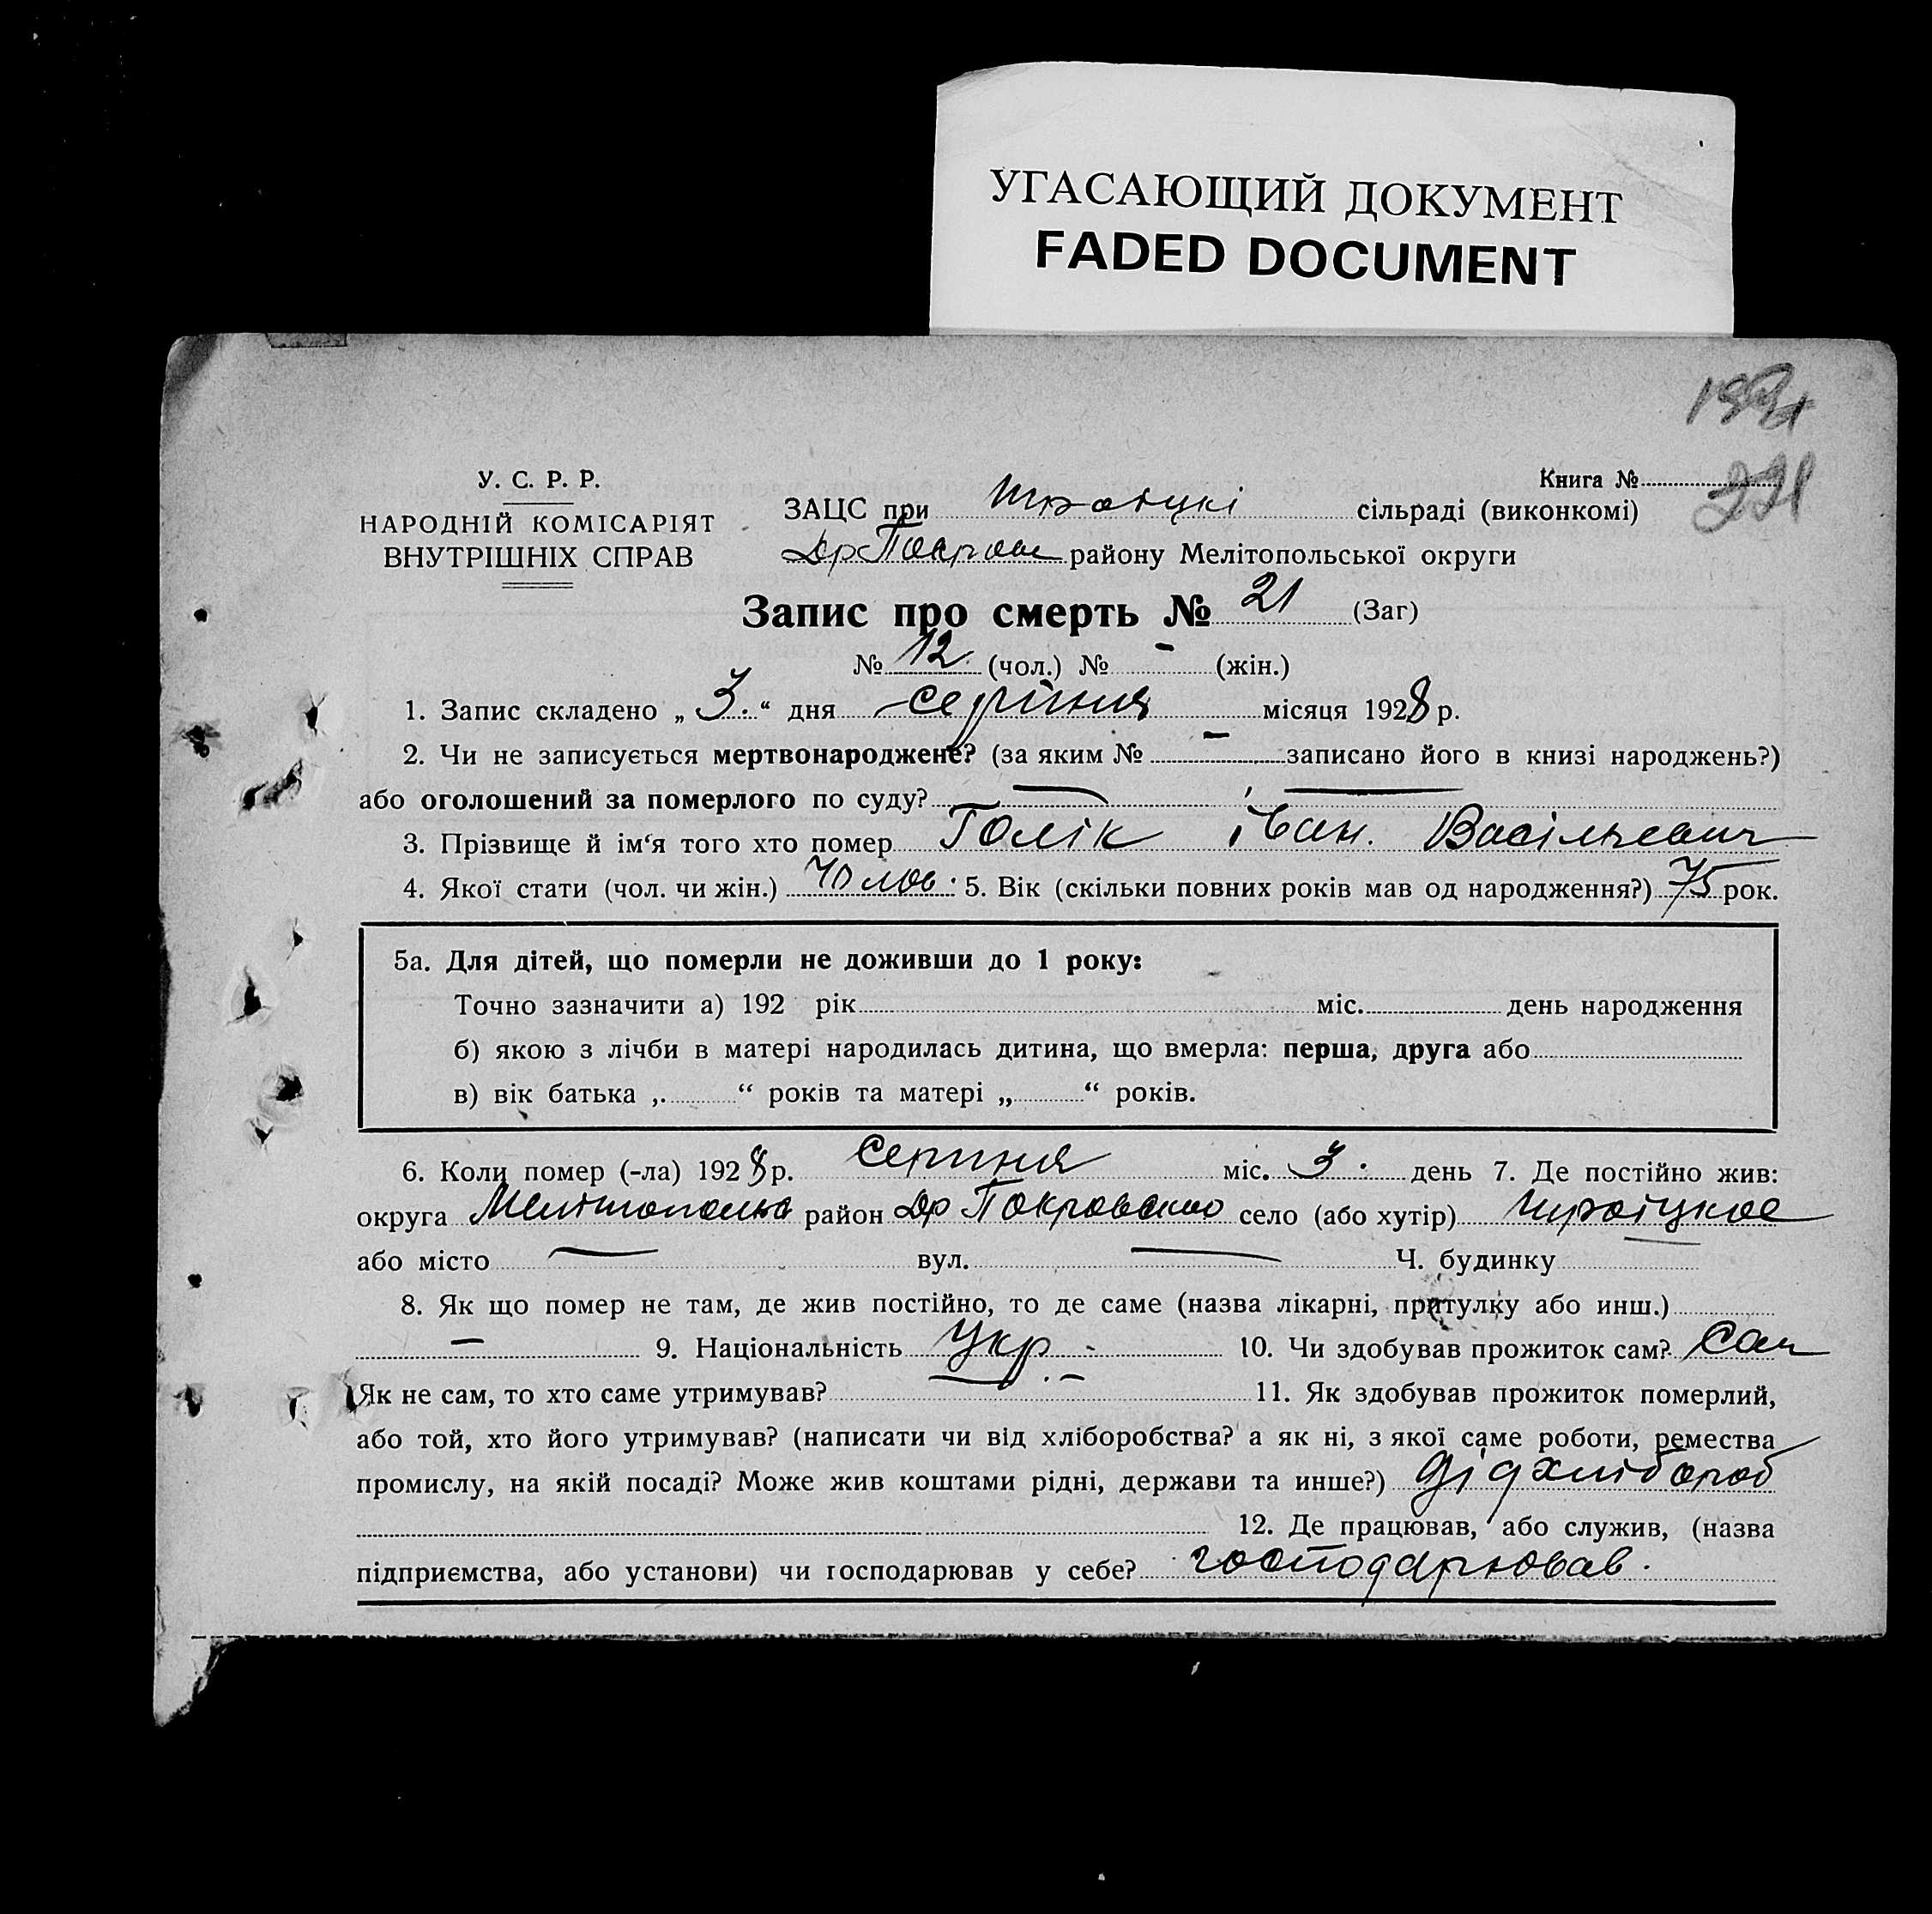 УГАСАЮЩИЙ ДОКУМЕНТ
FADED DOCUMENT
У. С. Р. Р.
НАРОДНІЙ КОМІСАРІЯТ
ВНУТРІШНІХ СПРАВ
Книга №
ЗАЦС при Троіцкі сільраді (виконкомі)
Др Покров районy Мелітопольської округи
Запис про смерть № 21 (Заг)
№ 12. (чол.) № - (жін.)
1. Запис складено „ 3. “ дня серпння місяця 1928 р.
2. Чи не записується мертвонароджене? (за яким № - записано його в книзі народжень?)
або оголошений за померлого по суду?
3. Прізвище й ім‘я того хто помер Голік іван. Васільевич
4. Якої стати (чол. чи жін.) Чолов. 5. Вік (скільки повних років мав од народження?) 75 рок.
5а. Для дітей, що померли не доживши до 1 року:
Точно зазначити а) 192 рік міс. день народження
б) якою з лічби в матері народилась дитина, що вмерла: перша, друга або
в) вік батька „ “ років та матері „ “ років.
6. Коли помер (-ла) 1928 р. Серпня міс. 3. день 7. Де постійно жив:
округа район Др Покровськ село (або хутір) Троіцкое
або місто — вул. — Ч. будинку
8. Як що помер не там, де жив постійно, то де саме (назва лікарні, притулку або инш.)
— 9. Національність Укр. - 10. Чи здобував прожиток сам? Сам
Як не сам, то хто саме утримував? 11. Як здобував прожиток померлий,
або той, хто його утримував? (написати чи від хліборобства? а як ні, з якої саме роботи, ремества
промислу, на якій посаді? Може жив коштами рідні, держави та инше?) Відхлібороб
12. Де працював, або служив, (назва
підприємства, або установи) чи господарював у себе? господарював.